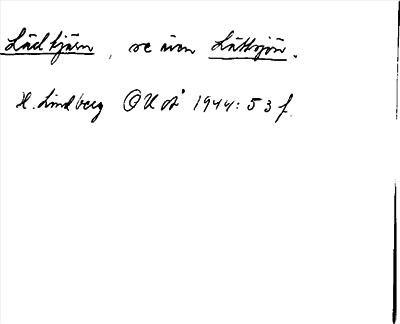 Lädtjärn, se även Lättsjön.
H. Lindberg OUÅ 1944: 53 f.